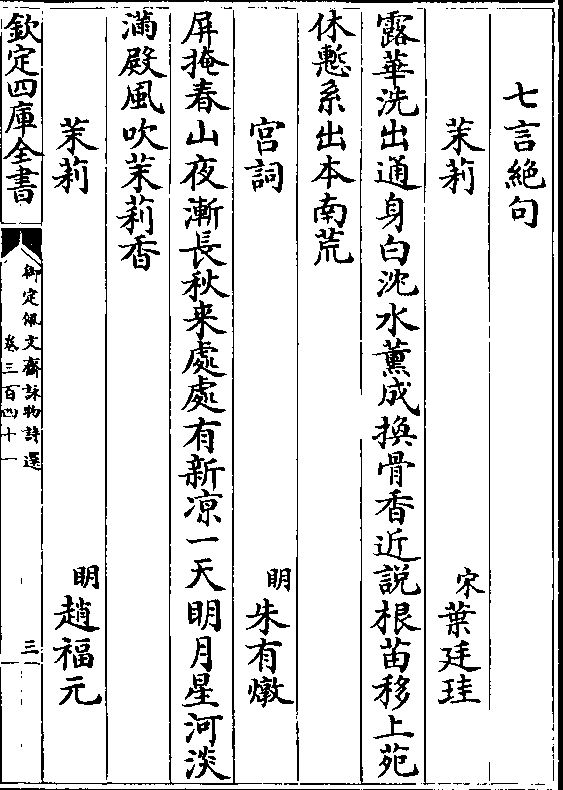 七言絕句
茉莉 宋 葉廷珪
露華洗出通身白沈水薰成換骨香近說根苗移上苑
休慙系出本南荒
宮詞 明 朱有燉
屏掩春山夜漸長秋来處處有新凉一天明月星河淡
滿殿風吹茉莉香
茉莉 明 趙福元
欽定四庫全書
御定佩文齋詠物詩選
卷三百四十一
三